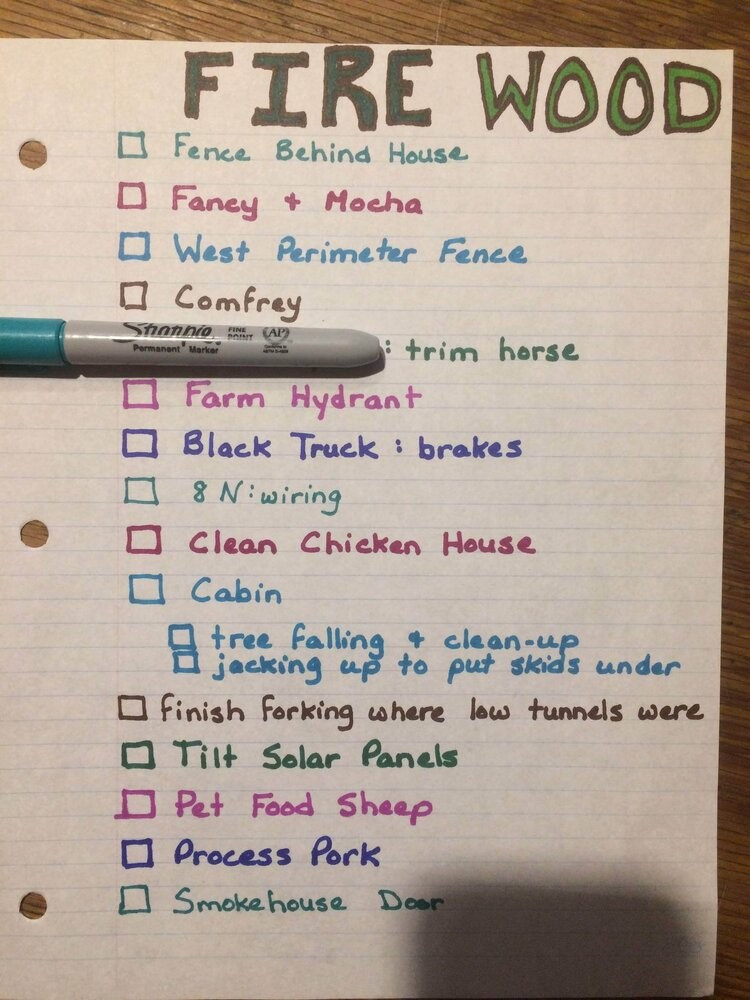 FIRE WOOD
Fence Behind House
Fancy + Mocha
West Perimeter Fence
Comfrey
Sharpie. FINE POINT AP
Permanent Marker
: trim horse
Farm Hydrant
Black Truck : brakes
8 N : wiring
Clean Chicken House
Cabin
tree falling + clean-up
jacking up to put skids under
finish forking where low tunnels were
Tilt Solar Panels
Pet Food Sheep
Process Pork
Smokehouse Door